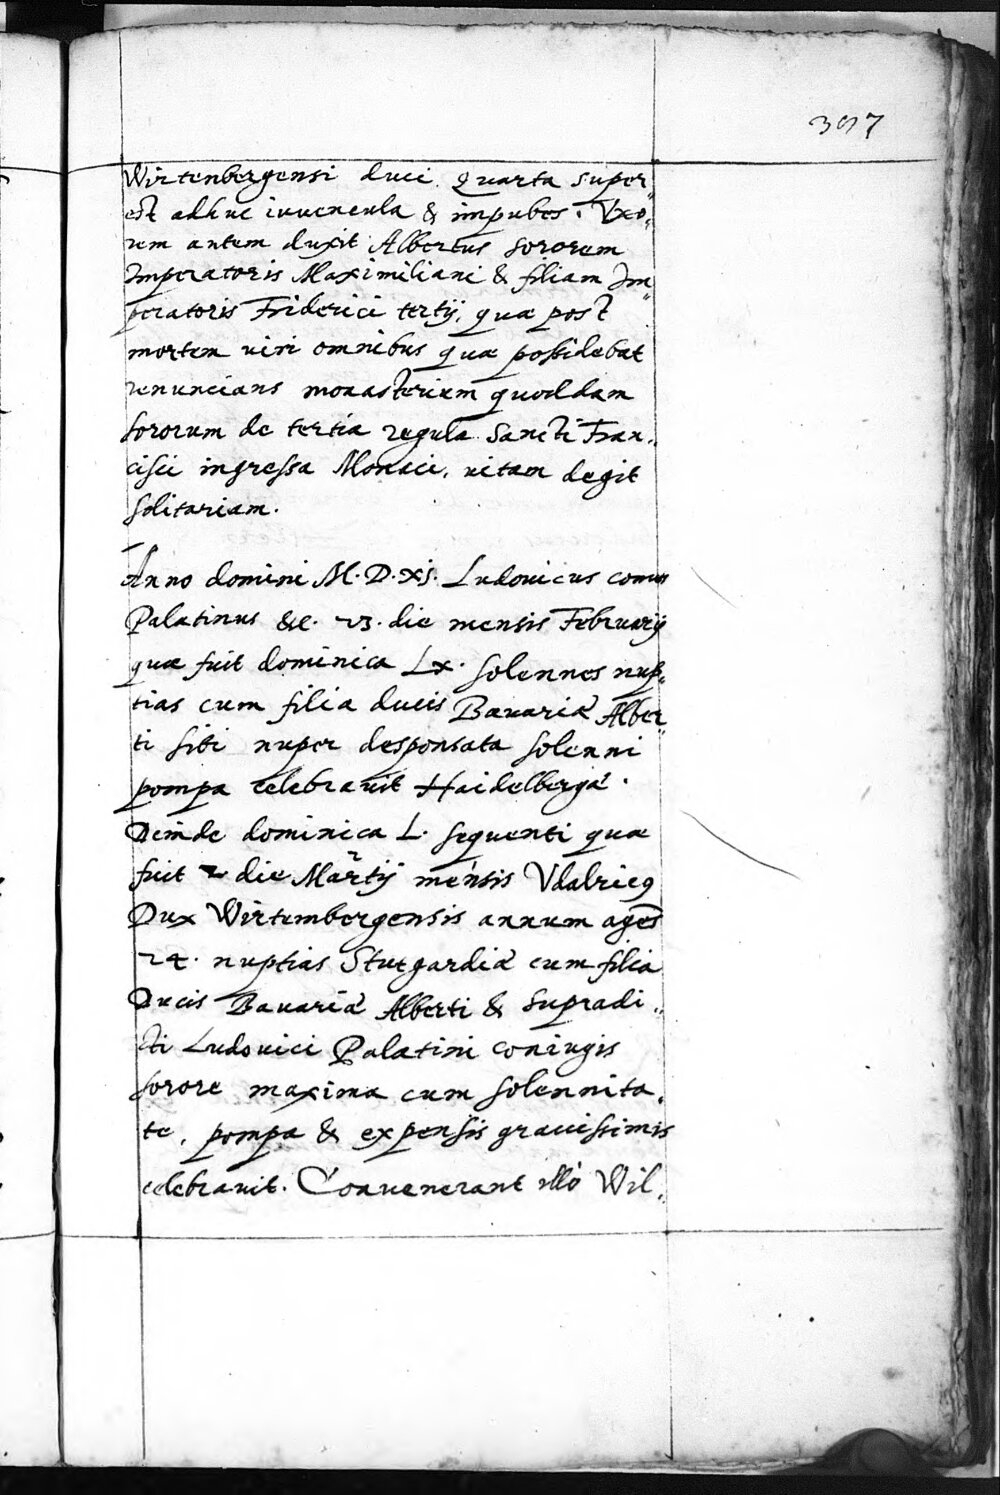 397
Wirtenbergensi duci. Quarta super„
est adhuc iuuencula & impubes. Vxo„
rem autem duxit Albertus sororem
Imperatoris Maximiliani & filiam Im„
peratoris Friderici tertij, quæ post
mortem uiri omnibus quæ possidebat
renuncians monasterium quoddam
sororum de tertia regula Sancti Fran„
cisci ingressa Monaci, uitam degit
solitariam.
Anno domini M.D.XI. Ludouicus comes
Palatinus &c. 23. die mensis Februarij
quæ fuit dominica Lx. solennes nup„
tias cum filia ducis Bauariæ Alber„
ti sibi nuper desponsata solenni
pompa celebrauit Haidelbergæ.
Deinde dominica L. sequenti quæ
fuit 2 die Martij mensis Vdalricq
Dux Wirtembergensis annum agēs
24. nuptias Stutgardiæ cum filia
Ducis Bauariæ Alberti & supradi„
cti Ludouici Palatini coniugis
sorore maxima cum solennita„
te, pompa & expensis grauissimis
celebrauit. Conuenerant illo Wil„